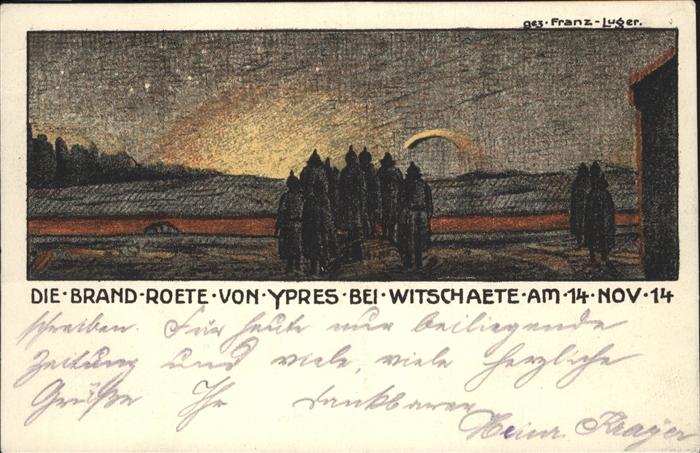 gez. Franz-Luger.
DIE·BRAND·ROETE·VON·YPRES·BEI·WITSCHAETE·AM·14·NOV·14
schreiben. Für heute nur beiliegende
Zeitung und viele, viele herzliche
Grüße Ihr dankbarer
Heinr. Krayer